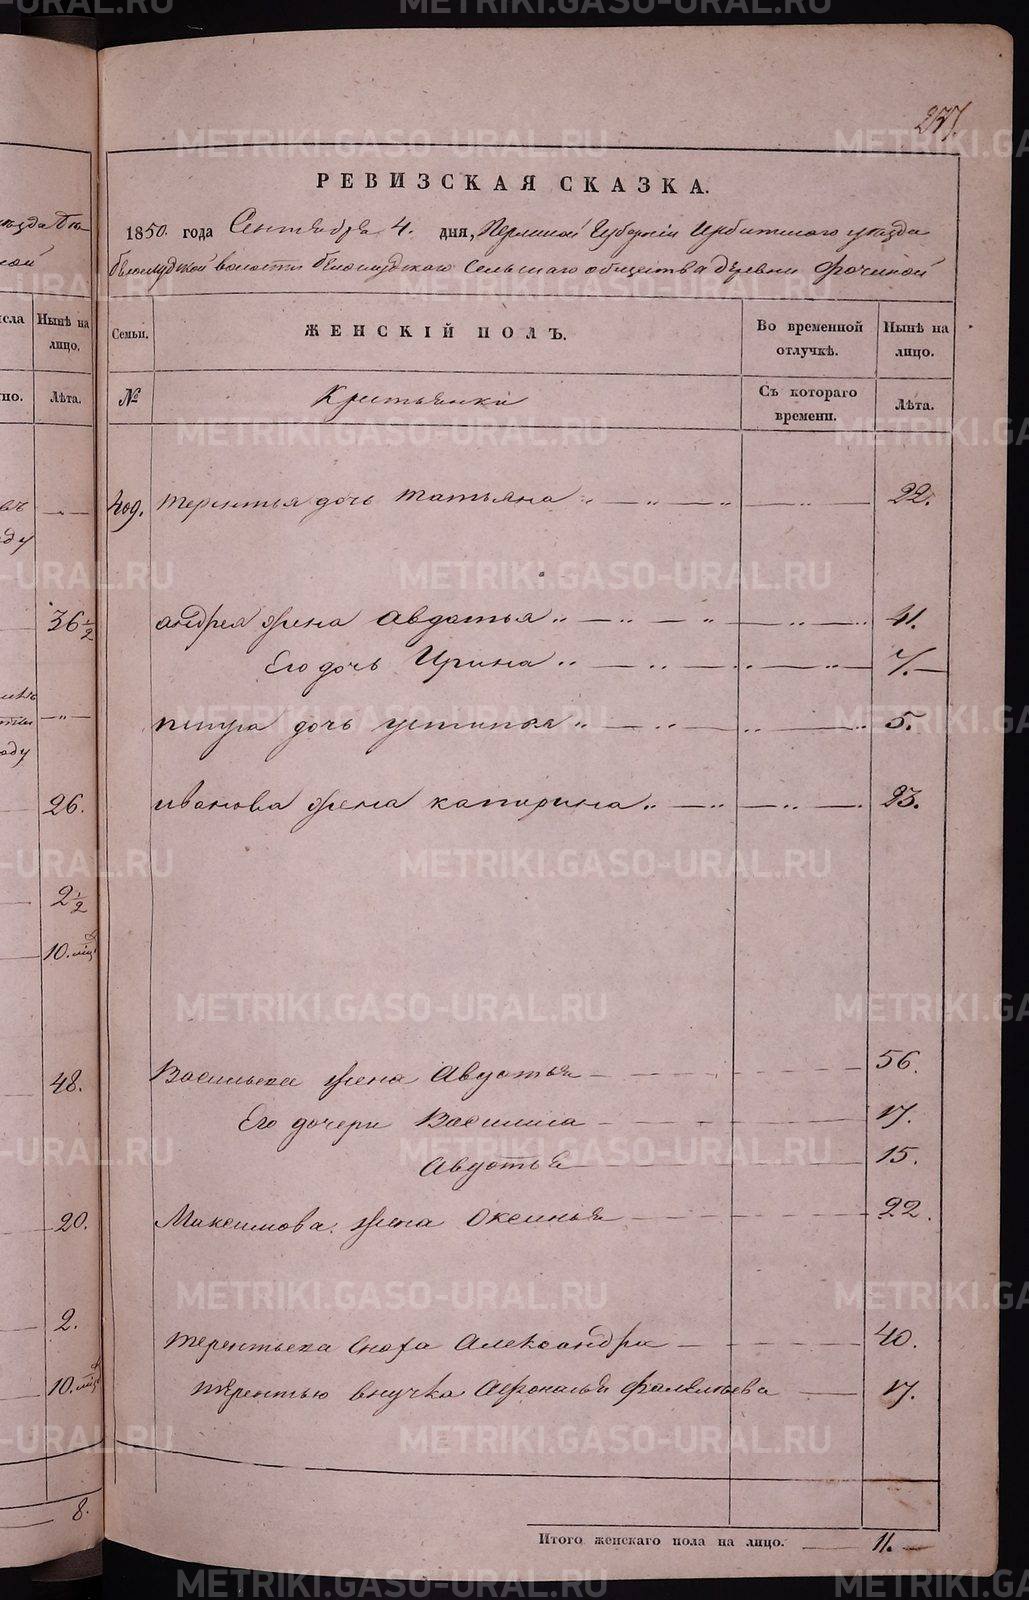 277.
РЕВИЗСКАЯ СКАЗКА.
1850. года Сентября 4. дня, Пермской Губернии Ирбитского уезда
Белослудской волости Белослудского Сельскаго общества деревни Фочиной
Семьи. ЖЕНСКІЙ ПОЛЪ. Во временной отлучкѣ. Нынѣ на лицо.
№ Крестьянки Съ котораго времени. Лѣта.
409. Терентья дочь Татьяна 22.
андрея жена Авдотья 41.
Его дочь Ирина 7.
петра дочь устинья 5.
иванова жена катирина 23.
Васильева жена Авдотья 56.
Его дочери Василиса 17.
Авдотья 15.
Максимова жена Оксинья 22.
Терентьева сноха Александра 40.
терентью внучка 17.
Итого женскаго пола на лицо. 11.
Нынѣ на лицо,
Лѣта.
36 1/2
26.
2 1/2
10.
48.
20.
2.
10.
8.
METRIKI.GASO-URAL.RU